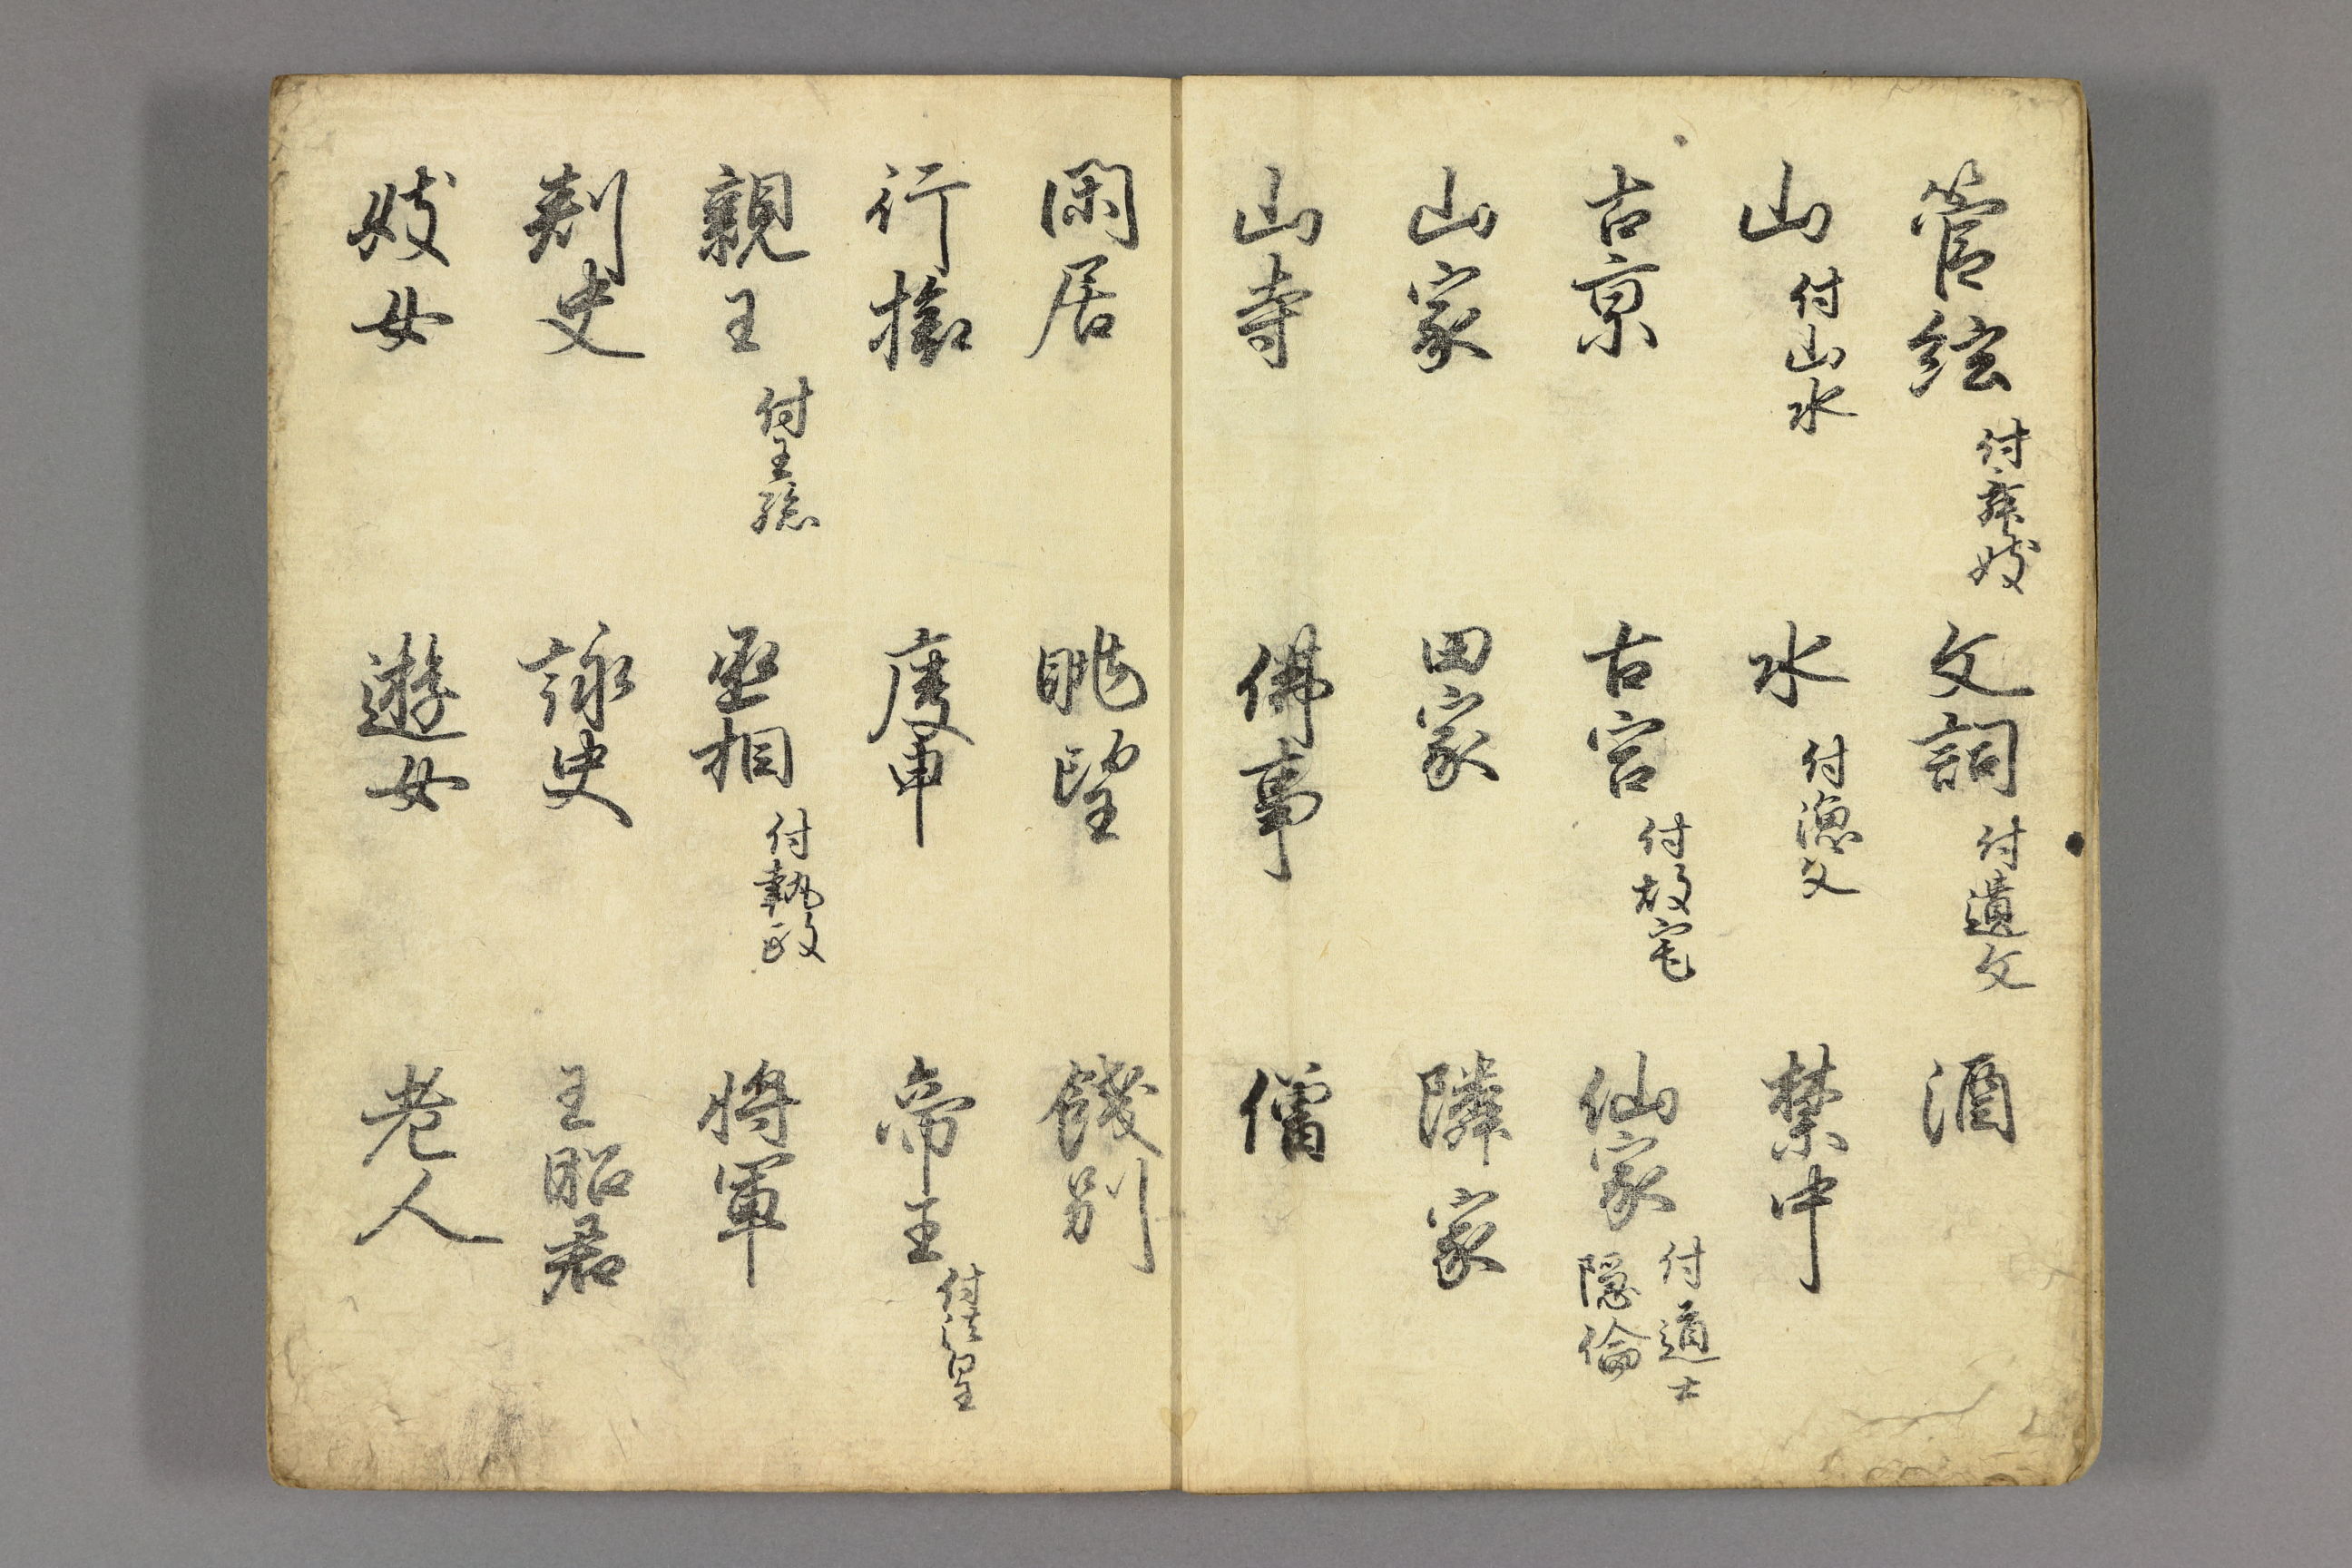 管絃付舞妓 文詞付遺文 酒
山付山水 水付漁父 禁中
古京 古宮付故宅 仙家付道士隠倫
山家 田家 隣家
山寺 佛事 僧
閑居 眺望 餞別
行旅 庚申 帝王付法皇
親王付王孫 丞相付執政 将軍
刺史 詠史 王昭君
妓女 遊女 老人